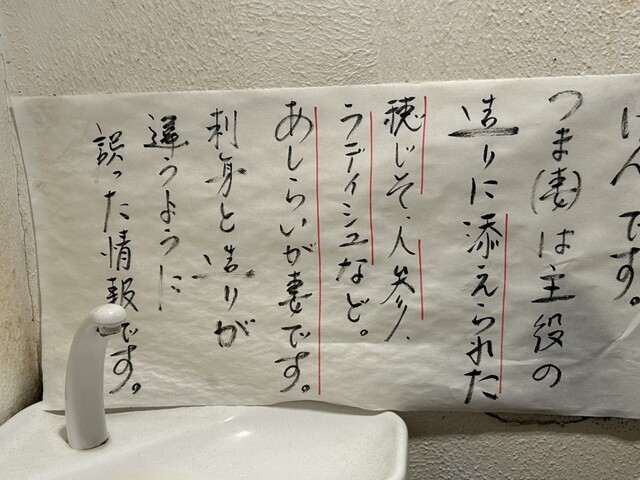 けんです。
つま(妻)は主役の
造りに添えられた
穂じそ、人参、
ラディシュなど。
あしらいが妻です。
刺身と造りが
違うように
誤った情報です。